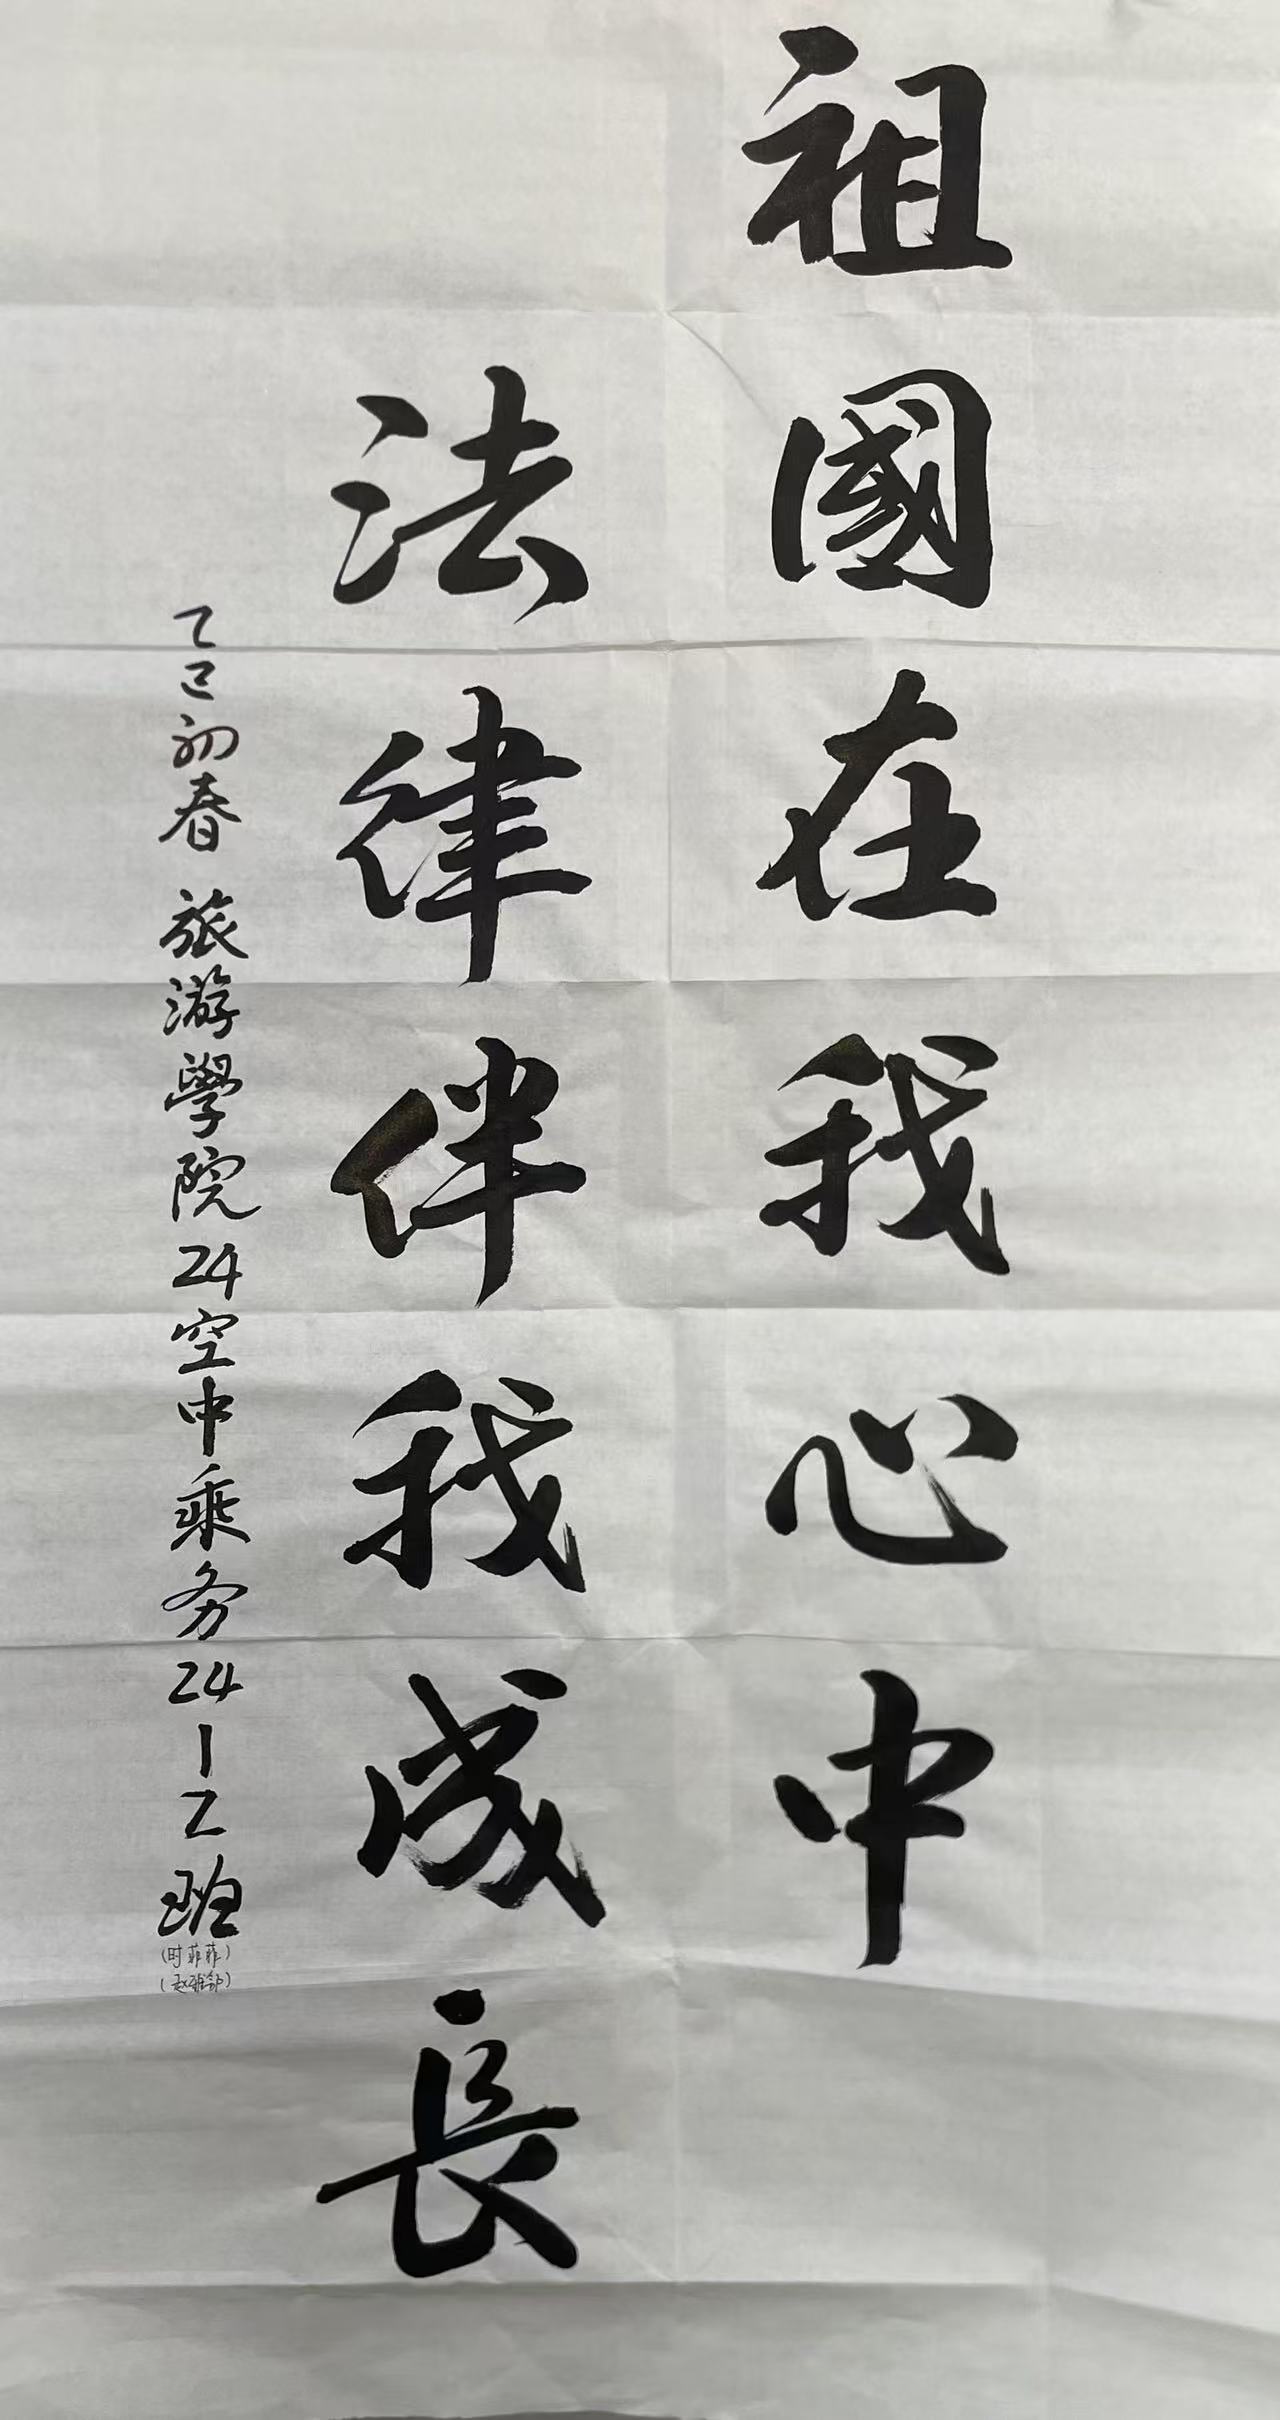 祖國在我心中
法律伴我成長
乙巳初春 旅游學院24空中乘务24-2班
(时菲菲)